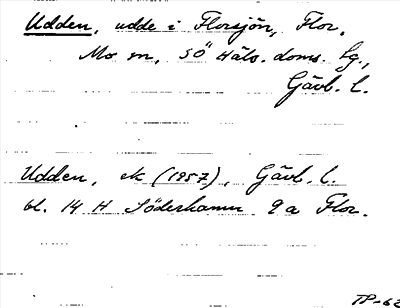 Udden, udde i Florsjön, Flor,
Mo sn, SÖ Häls. doms. lg.,
Gävl. l.
Udden, ek (1957), Gävl. l.
bl. 14 H Söderhamn 9 a Flor.
TP-62